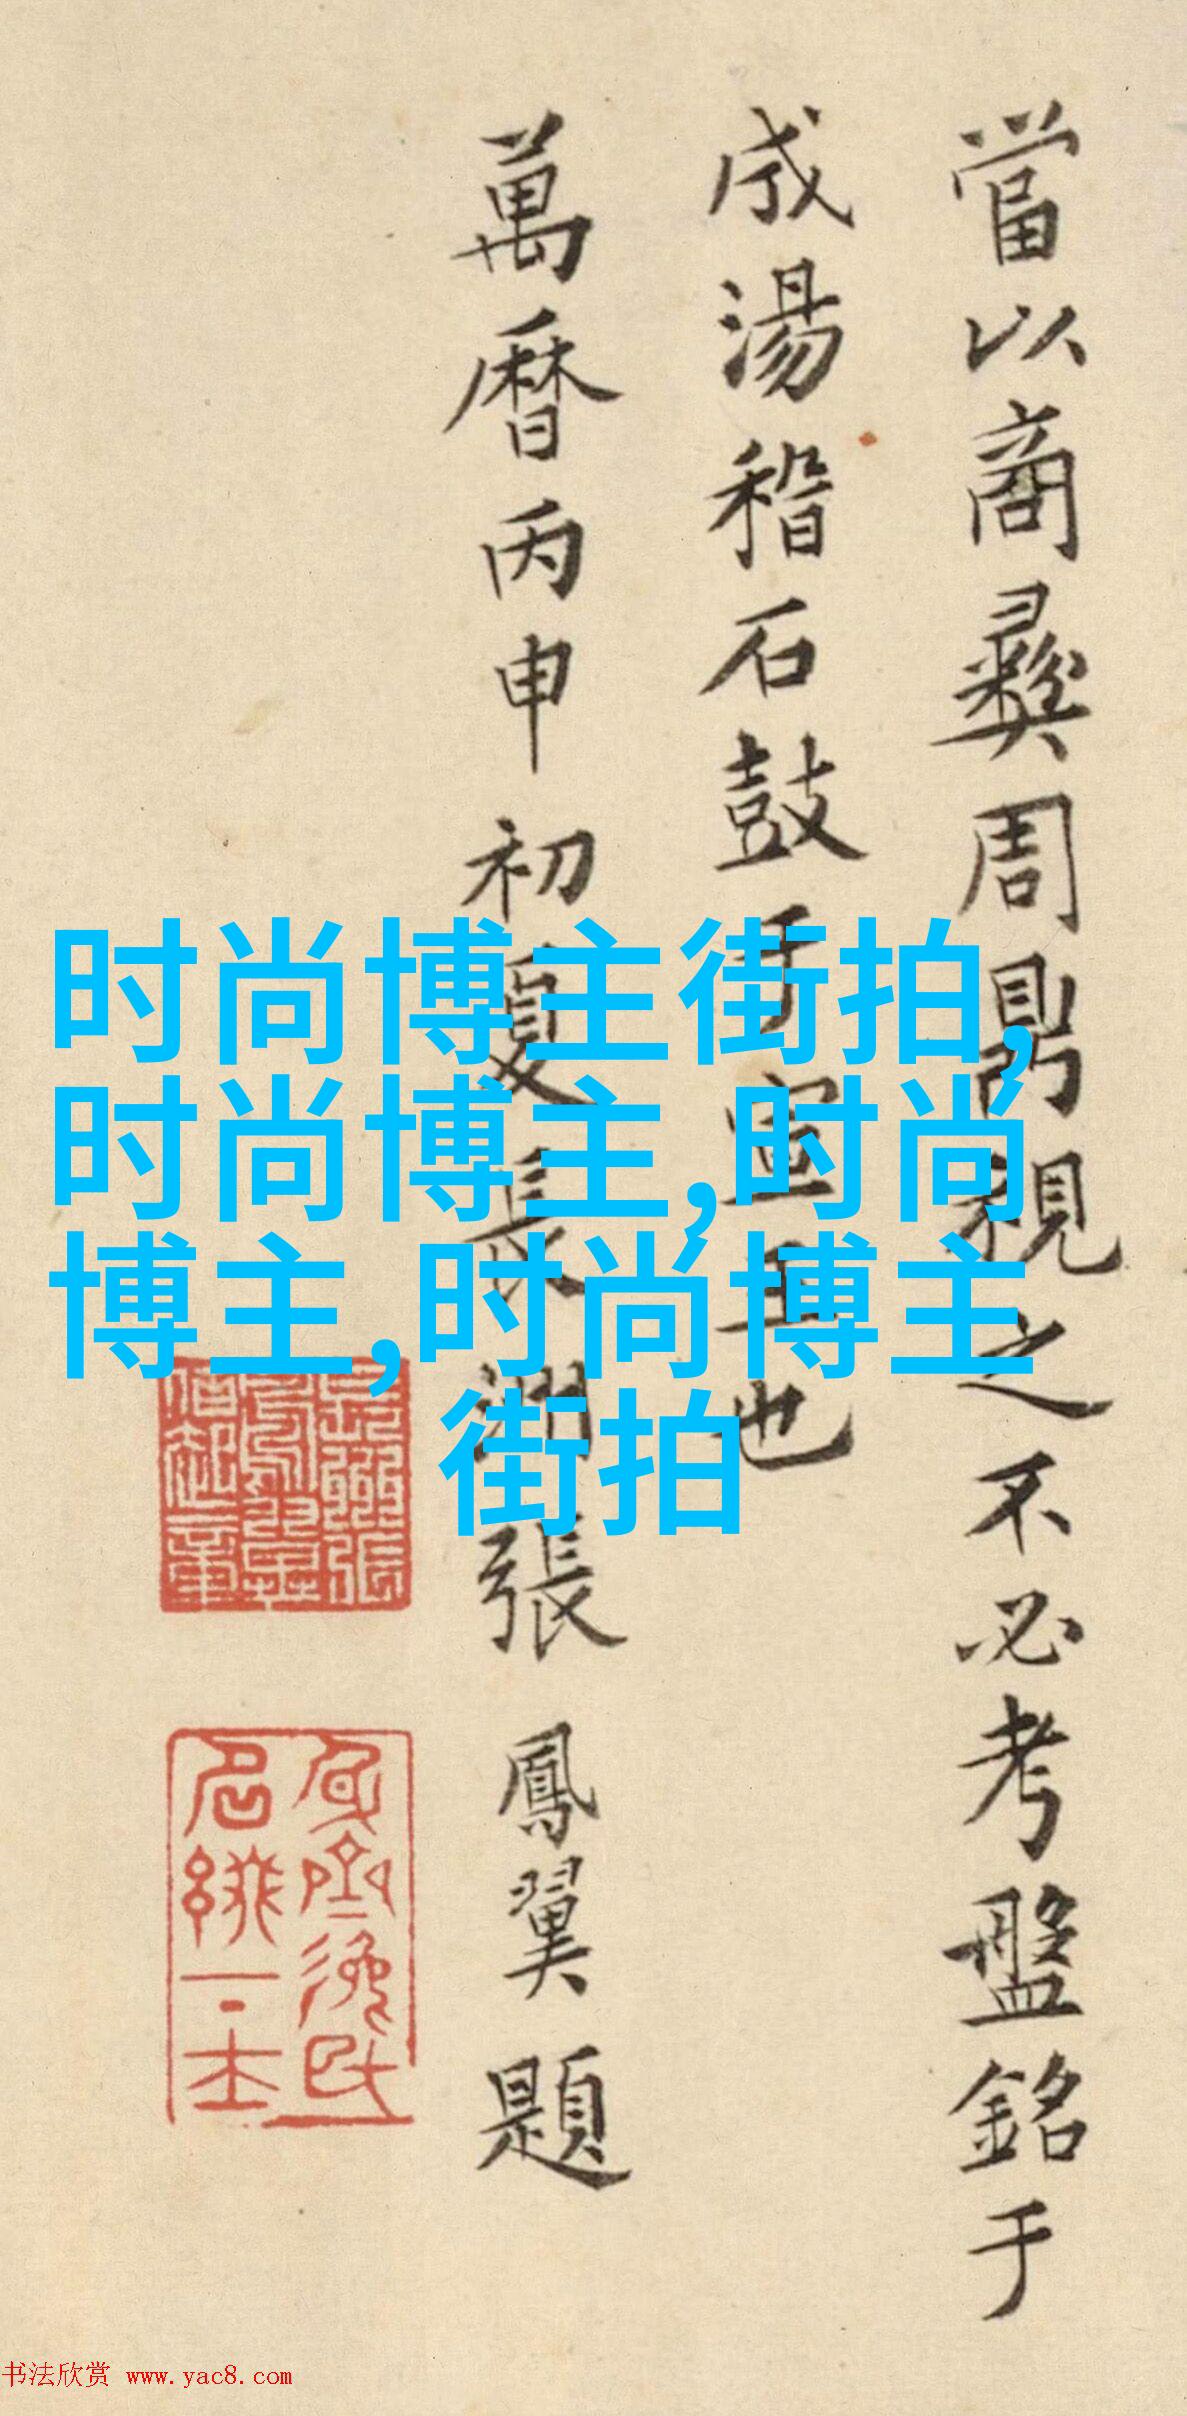 當以商彝周鼎視之不必考盤銘于
成湯稽石鼓于宣王也
萬曆丙申初夏長洲張鳳翼題
时尚博主街拍,
时尚博主,时尚
博主,时尚博主
街拍
书法欣赏 www.yac8.com